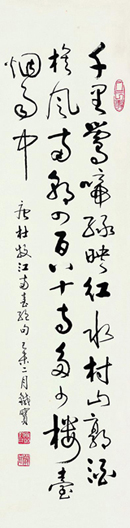 千里莺啼绿映红水村山郭酒
旗风南朝四百八十寺多少楼台
烟雨中
唐杜牧江南春绝句 二月